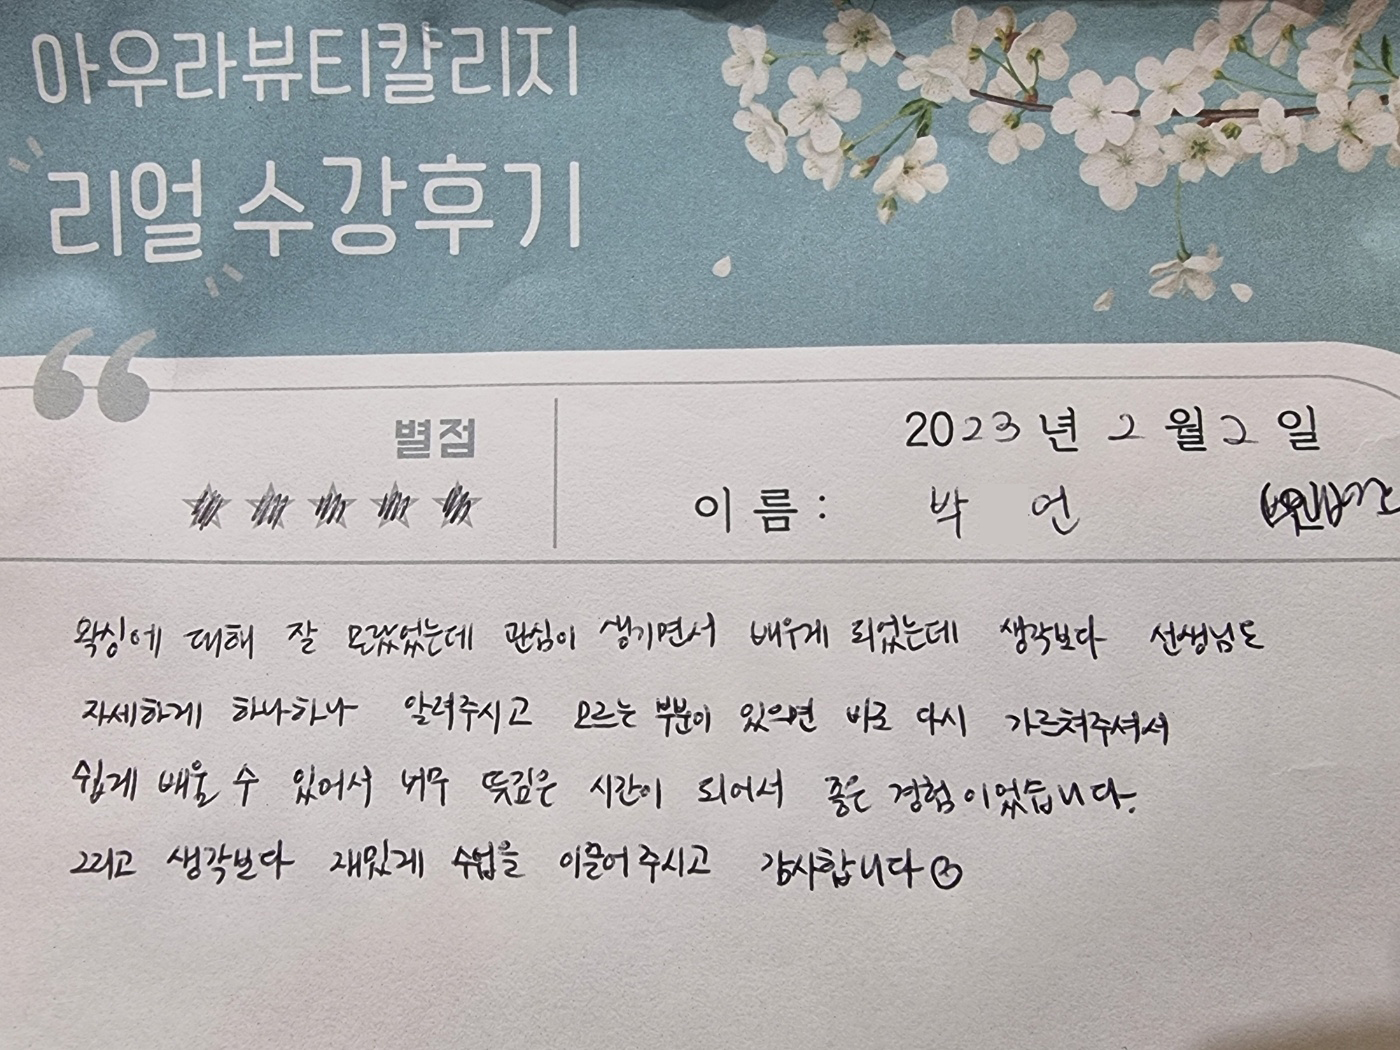 아우라뷰티칼리지
리얼 수강후기
별점
2023년 2월 2일
이름 : 박 언
왁싱에 대해 잘 모랐었는데 관심이 생기면서 배우게 되었는데 생각보다 선생님도
자세하게 하나하나 알려주시고 모르는 부분이 있으면 바로 다시 가르쳐주셔서
쉽게 배울 수 있어서 너무 뜻깊은 시간이 되어서 좋은 경험이었습니다.
그리고 생각보다 재밌게 수업을 이끌어주시고 감사합니다